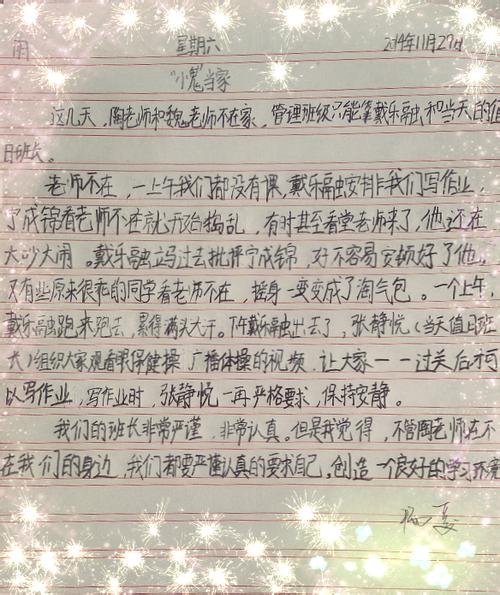 雨 星期六 2014年11月29日
"小鬼"当家
这几天，陶老师和魏老师不在家，管理班级只能靠戴乐融和当天的值
日班长。
老师不在，一上午我们都没有课，戴乐融安排我们写作业，
成锦看老师不在就开始捣乱，有时甚至看堂老师来了，他还在
大吵大闹。戴乐融立马过去批评宁成锦，好不容易安顿好了他，
又有些原来很乖的同学看老师不在，摇身一变变成了淘气包。一个上午，
戴乐融跑来跑去，累得满头大汗。下午戴乐融出去了，张静悦（当天值日班
长）组织大家观看眼保健操、广播体操的视频，让大家一一过关后才可
以写作业，写作业时，张静悦一再严格要求，保持安静。
我们的班长非常严谨，非常认真。但是我觉得，不管陶老师在不
在我们的身边，我们都要严谨认真的要求自己，创造一个良好的学习环境